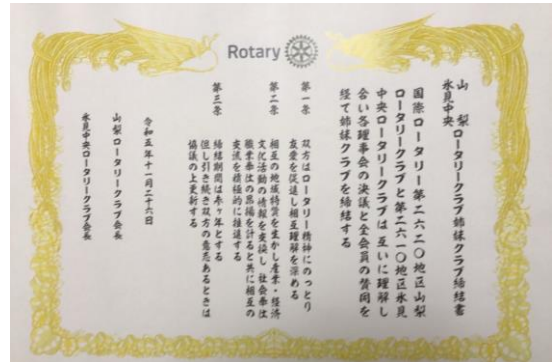 Rotary
山 梨ロータリークラブ姉妹クラブ締結書
氷見中央
国際ロータリー第二六二〇地区山梨
ロータリークラブと第二六一〇地区氷見
中央ロータリークラブは互いに理解し
合い各理事会の決議と全会員の賛同を
経て姉妹クラブを締結する
第一条 双方はロータリー精神にのっとり
友愛を促進し相互理解を深める
第二条 相互の地域特質を生かし産業・経済
文化活動の情報を交換し 社会奉仕
職業奉仕の思揚を計ると共に相互の
交流を積極的に推進する
第三条 締結期間は参ヶ年とする
但し引き続き双方の意志あるときは
協議の上更新する
令和五年十一月二十六日
山梨ロータリークラブ会長
氷見中央ロータリークラブ会長